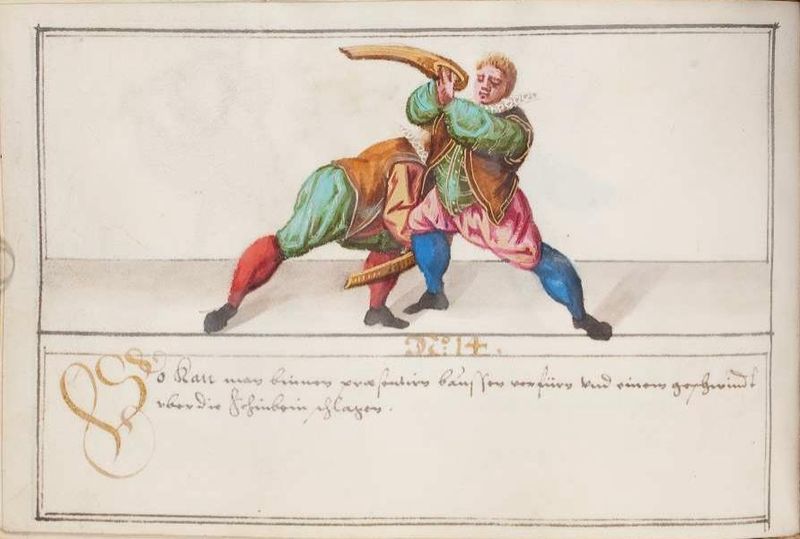 No: 14.
So Kan man binnen præsentirn baussen verfürn vnd einem geschwindt
vber die schinbein schlagen.